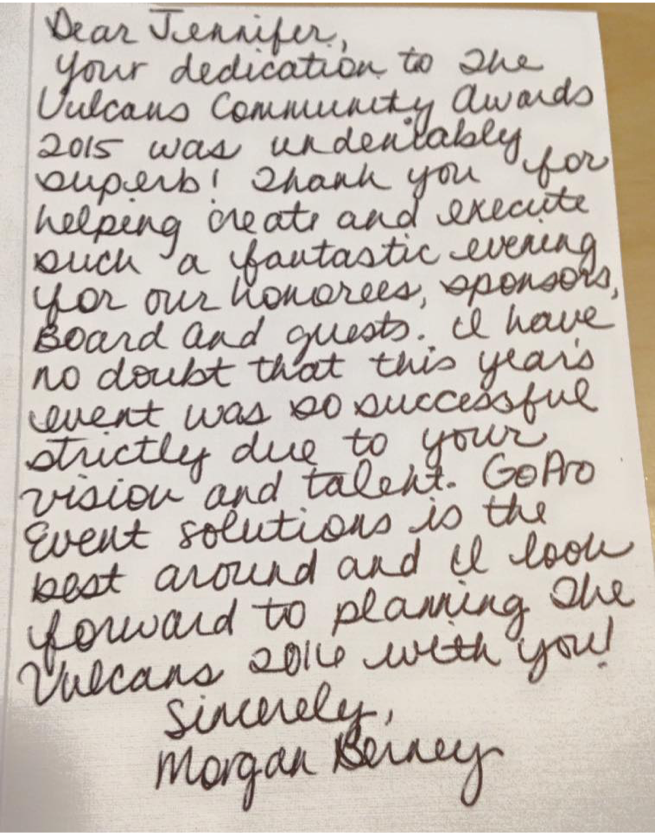 Dear Jennifer,
Your dedication to The
Vulcans Community Awards
2015 was undeniably
superb! Thank you for
helping create and execute
such a fantastic evening
for our honorees, sponsors,
Board and guests. I have
no doubt that this year's
event was so successful
strictly due to your
vision and talent. GoPro
Event solutions is the
best around and I look
forward to planning The
Vulcans 2016 with you!
Sincerely,
Morgan Berney